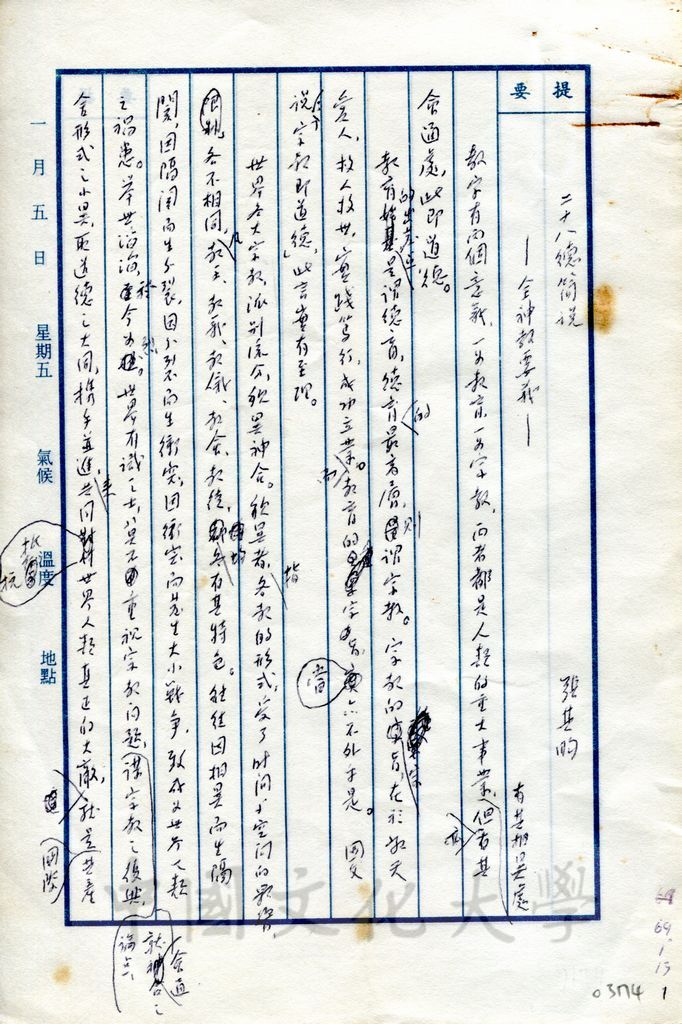 提要
二十八德簡說
—全神教要義—
張其昀
教字有兩個意義,一為教育,一為宗教,兩者都是人類的重大事業,但有其
有其相異處
會通處,此即道德。
教育的出發點是謂德育,德育的最高層,則謂宗教。宗教的宗旨,在於敬天
愛人,救人救世,實踐篤行,成功立業。而教育的宗旨,當亦不外乎是。國父
說「宗教即道德」,此言實有至理。
世界各大宗教,派別流分,貌異神合。貌異者,指各教的形式,受了時間和空間的影響,
各不相同,凡教主、教義、教儀、教會、教統,均各有其特色。往往因相異而生隔
閡,因隔閡而生分裂,因分裂而生衝突,因衝突而發生大小戰爭,致成為世界人類
之禍患。舉世滔滔,於今為烈。世界有識之士,莫不重視宗教問題,謀宗教之復興,
就神合之論點,
會通
舍形式之小異,取道德之大同,攜手並進,來共同抵抗世界人類真正的大敵,就是
國際
共產
一月五日 星期五 氣候 溫度 地點
中國文化大學
69
1
13
1
03714